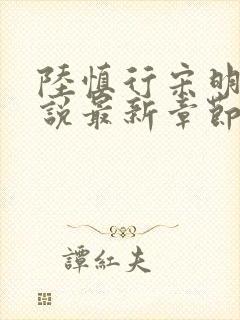 陸慎行宋明
說最新章節
譚紅夫